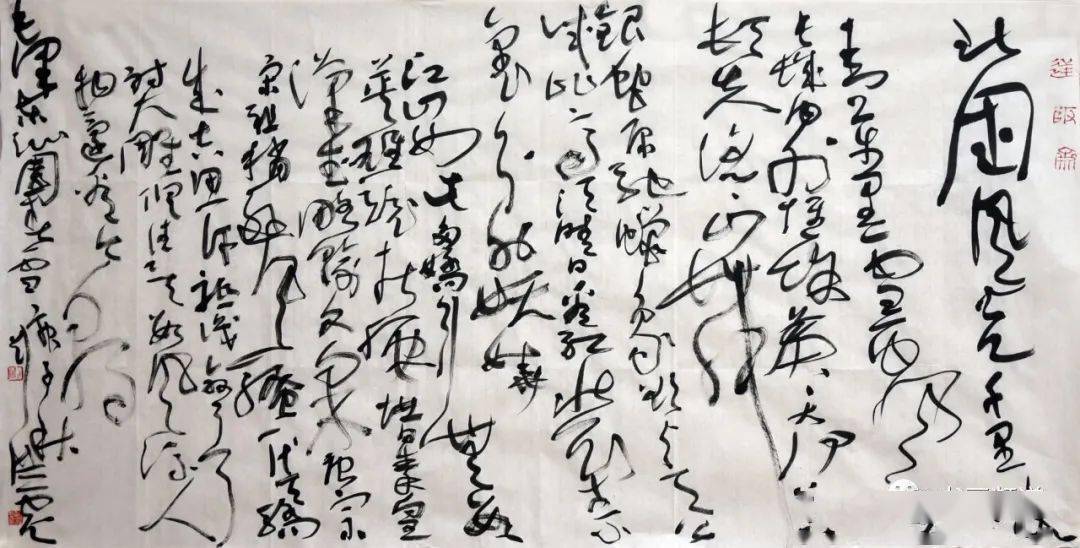 北国风光千里冰
封万里雪飘
长城内外惟馀莽莽大河上下
顿失滔滔山舞
銀蛇原驰蠟象欲与天公
试比高须晴日看红装素
裹分外妖娆
江山如此多嬌引無数
英雄竞折腰惜秦皇
漢武略输文采唐宗
宋祖稍逊风骚一代天骄
成吉思汗祗识弯弓
射大雕俱往矣数风流人
物還看今朝
毛泽东沁園春雪庚子秋